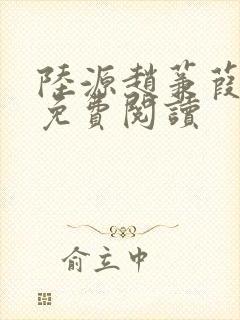 陸源趙蒹葭
免費閱讀
俞立中